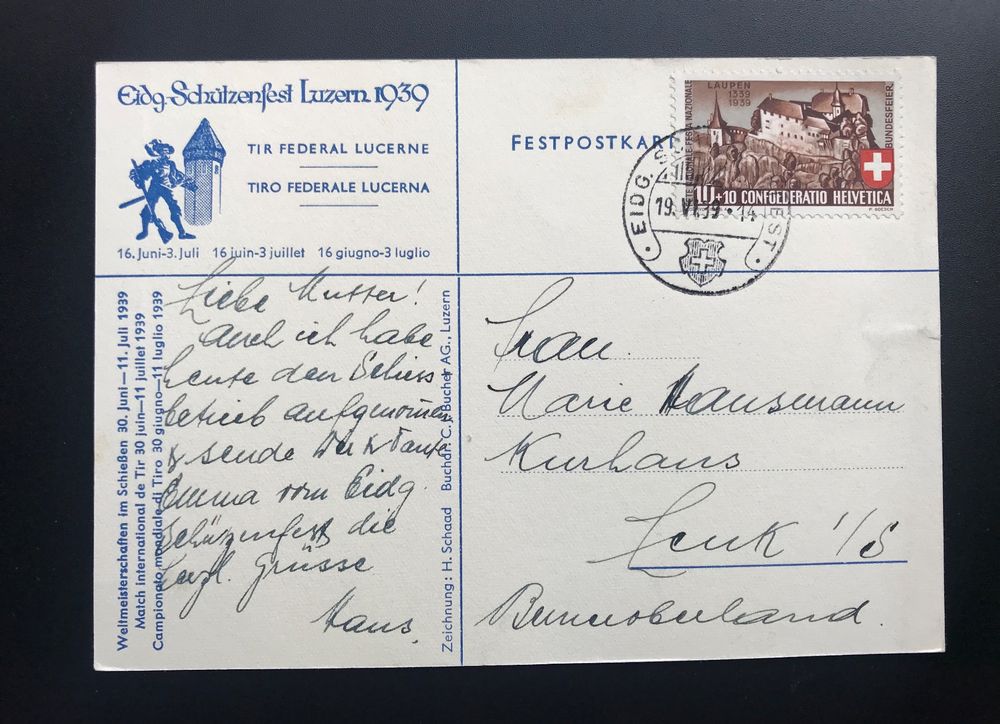 Eidg. Schützenfest Luzern 1939
TIR FEDERAL LUCERNE
TIRO FEDERALE LUCERNA
16. Juni-3. Juli 16 juin-3 juillet 16 giugno-3 luglio
FESTPOSTKAR
LAUPEN
1339
1939
FESTA NAZIONALE
BUNDESFEIER
10+10 CONFŒDERATIO HELVETICA
P. BOESCH
EIDG. SC
EST
19.VI.39 • 14
Weltmeisterschaften im Schießen 30. Juni—11. Juli 1939
Match international de Tir 30 juin—11 juillet 1939
Campionato mondiale di Tiro 30 giugno—11 luglio 1939
Liebe Mutter!
Auch ich habe
heute den Schiess
betrieb aufgenommen
& sende Dir & Tante
Emma vom Eidg.
Schützenfest die
herzl. Grüsse
Hans.
Zeichnung: H. Schaad Buchdr. C. J. Bucher AG., Luzern
Frau.
Marie Hausmann
Kurhaus
Lenk i/S
Berneroberland.